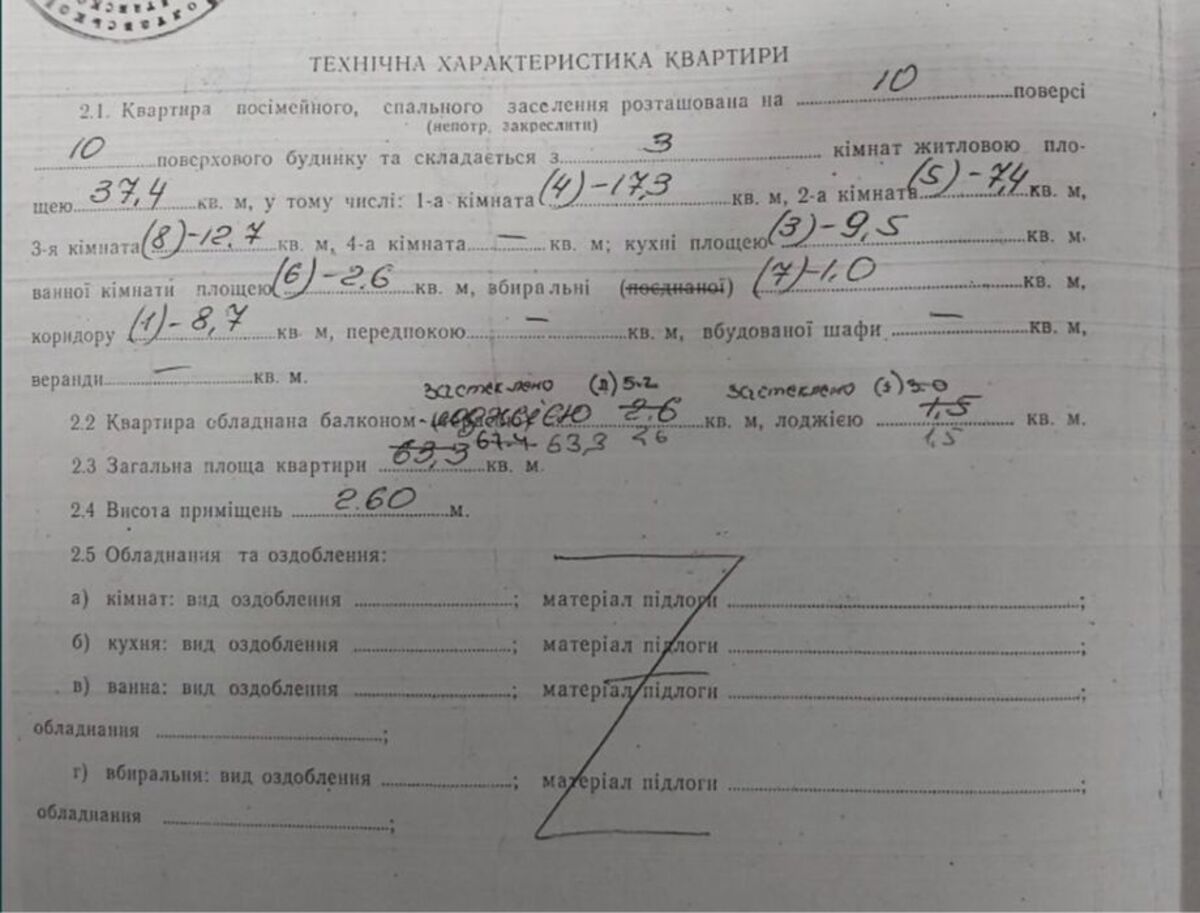 ТЕХНІЧНА ХАРАКТЕРИСТИКА КВАРТИРИ
2.1. Квартира посімейного, спального заселення розташована на 10 поверсі
(непотр. закреслити)
10 поверхового будинку та складається з 3 кімнат житловою пло-
щею 37,4 кв. м, у тому числі: 1-а кімната (4)-17,3 кв. м, 2-а кімната (5)-7,4 кв. м,
3-я кімната (8)-12.7 кв. м, 4-а кімната — кв. м; кухні площею (3)-9,5 кв. м.
ванної кімнати площею (6)-2.6 кв. м, вбиральні (поєднаної) (7)-1,0 кв. м,
коридору (1)-8,7 кв. м, передпокою — кв. м, вбудованої шафи — кв. м,
веранди — кв. м.
застеклено 5.2 застеклено 3.0
2.2 Квартира обладнана балконом- 2.6 кв. м, лоджією 1,5 кв. м.
67.4 63,3 2.6 1,5
2.3 Загальна площа квартири 63,3 кв. м.
2.4 Висота приміщень 2.60 м.
2.5 Обладнання та оздоблення:
а) кімнат: вид оздоблення ; матеріал підлоги ;
б) кухня: вид оздоблення ; матеріал підлоги ;
в) ванна: вид оздоблення ; матеріал підлоги ;
обладнання ;
г) вбиральня: вид оздоблення ; матеріал підлоги ;
обладнання ;